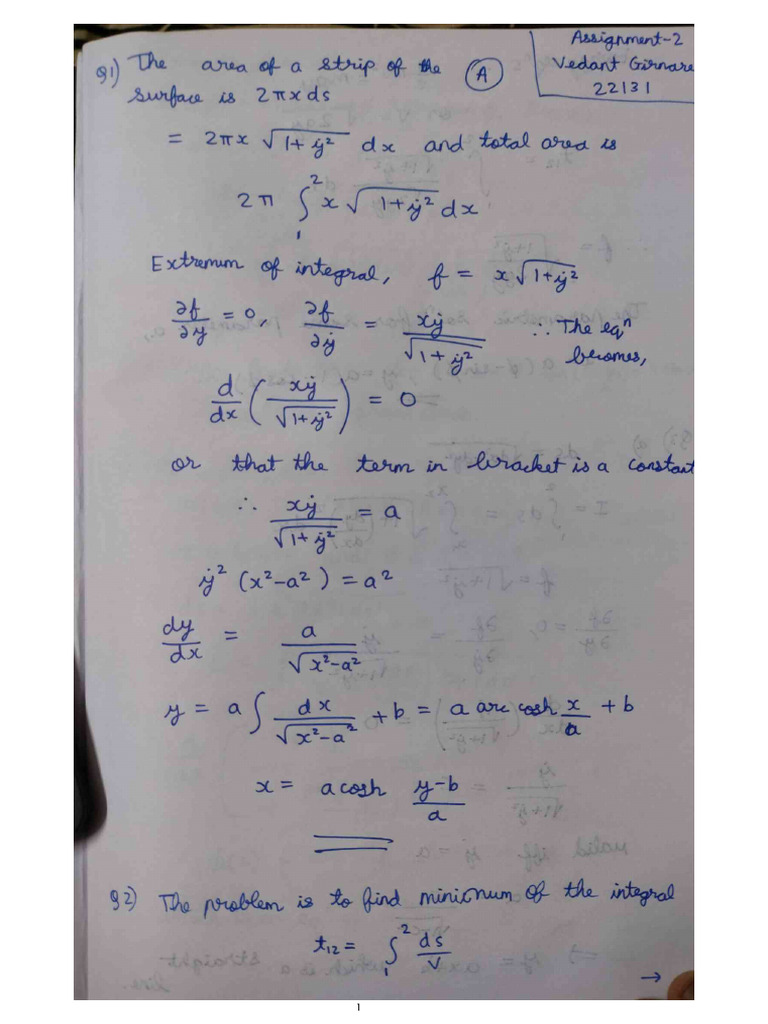 Assignment-2
Vedant Girnare
22131
Q1) The area of a strip of the (A)
surface is 2πx ds
= 2πx √(1+ẏ²) dx and total area is
2π ∫₁² x √(1+ẏ²) dx
Extremum of integral, f = x√(1+ẏ²)
∂f/∂y = 0, ∂f/∂ẏ = xẏ/√(1+ẏ²) ∴ The eqⁿ
becomes,
d/dx (xẏ/√(1+ẏ²)) = 0
or that the term in bracket is a constant
∴ xẏ/√(1+ẏ²) = a
ẏ² (x²-a²) = a²
dy/dx = a/√(x²-a²)
y = a ∫ dx/√(x²-a²) + b = a arc cosh x/a + b
x = a cosh (y-b)/a
Q2) The problem is to find minimum of the integral
t₁₂ = ∫₁² ds/V
→
1